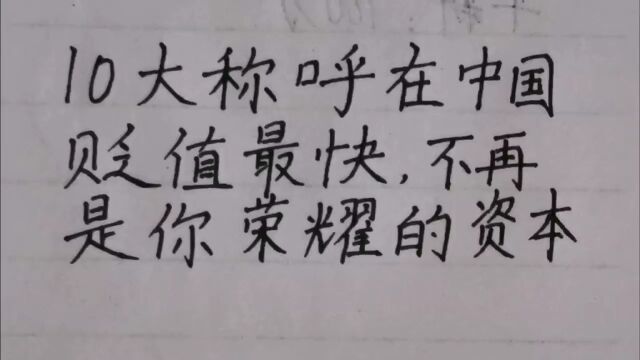 10大称呼在中国
贬值最快,不再
是你荣耀的资本